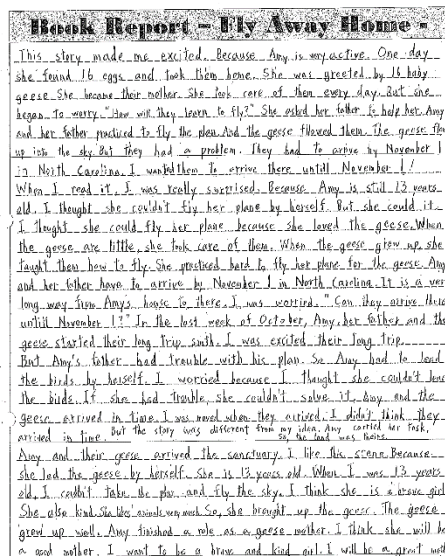 Book Report - Fly Away Home -
This story made me excited. Because Amy is very active. One day
she found 16 eggs and took them home. She was greeted by 16 baby
geese. She became their mother. She took care of them every day. But she
began to worry. "How will they learn to fly?" She asked her father to help her. Amy
and her father practiced to fly the plan. And the geese fllowed them. the geese flew
up into the sky. But they had a problem. They had to arrive by November 1
in North Carolina. I wanted them to arrive there untill November 1!
When I read it, I was really surprised. Because Amy is still 13 years
old. I thought she couldn't fly her plane by herself. But she could it.
I thought she could fly her plane because she loved the geese. When
the geese are little, she took care of them. When the geese grew up, she
taught them how to fly. She practiced hard to fly her plane for the geese. Amy
and her father have to arrive by November 1 in North Carolina. It is a very
long way from Amy's house to there. I was worried. "Can they arrive there
untill November 1?" In the last week of October, Amy, her father and the
geese started their long trip south. I was excited their long trip.
But Amy's father had trouble with his plan. So Amy had to lead
the birds by herself. I worried because I thought she couldn't lead
the birds. If she had trouble, she couldn't solve it. Amy and the
geese arrived in time. I was moved when they arrived. I didn't think they
arrived in time. But the story was different from my idea. Amy carried her task,
So, the land was theirs.
Amy and their geese arrived the sanctuary. I like this scene. Because
she led the geese by herself. She is 13 years old. When I was 13 years
old, I couldn't take the plan and fly the sky. I think she is a brave girl.
She also kind. She likes animals very much. So, she brought up the geese. The geese
grew up well. Amy finished a role as a geese mother. I think she will be
a good mother. I want to be a brave and kind girl. I will be a great